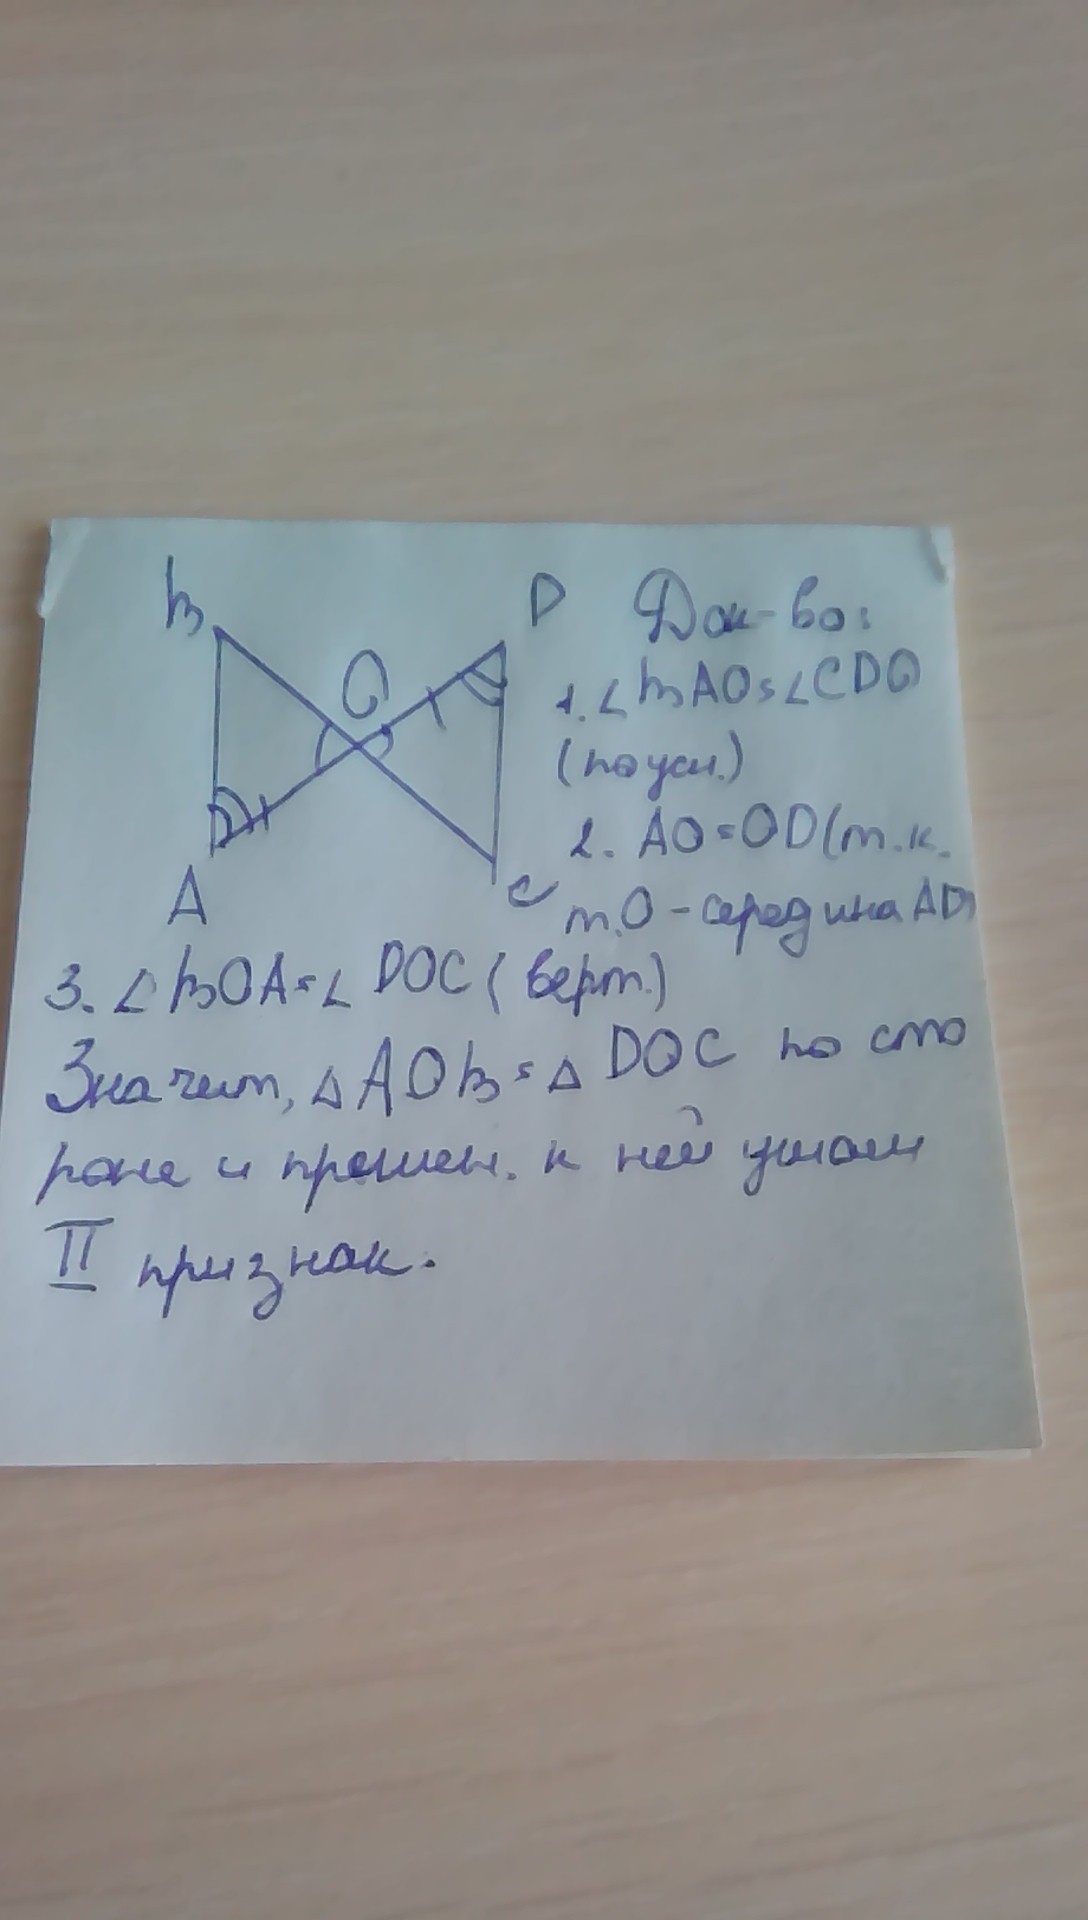 B
D
O
A
C
Док-во:
1. ∠BAO=∠CDO
(по усл.)
2. AO=OD(т.к.
т.O - середина AD)
3. ∠BOA=∠DOC (верт.)
Значит, △AOB=△DOC по сто
роне и прилеж. к ней углам
II признак.